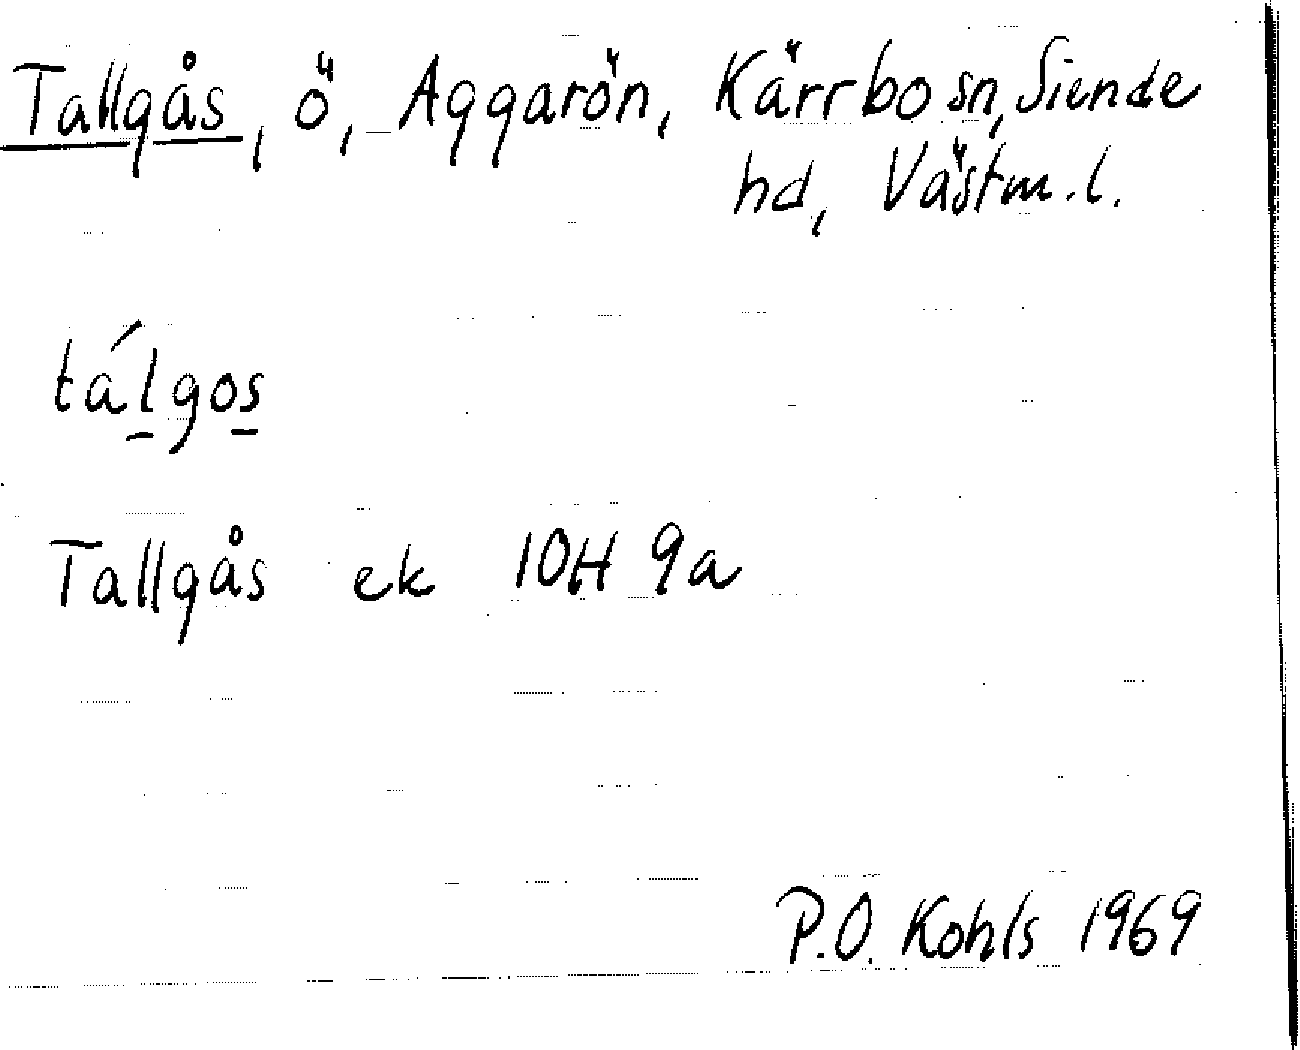 Tallgås, ö, Aggarön, Kärrbo sn, Siende
hd, Västm.l.
tálgos
Tallgås ek 10H 9a
P.O. Kohls 1969